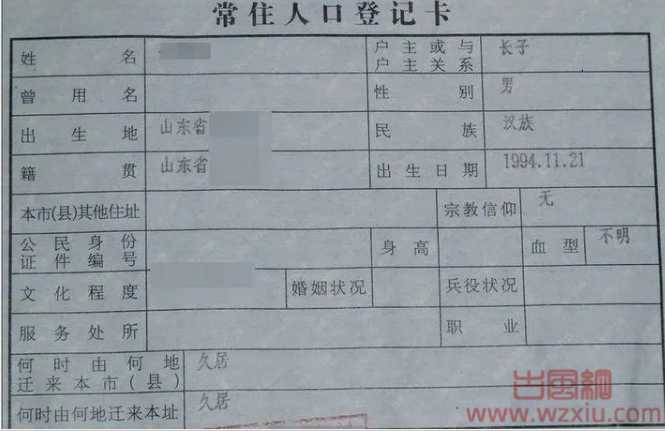 常住人口登记卡
姓名 户主或与户主关系 长子
曾用名 性别 男
出生地 山东省 民族 汉族
籍贯 山东省 出生日期 1994.11.21
本市(县)其他住址 宗教信仰 无
公民身份证件编号 身高 血型 不明
文化程度 婚姻状况 兵役状况
服务处所 职业
何时由何地迁来本市(县) 久居
何时由何地迁来本址 久居
出国网
www.wzxiu.com